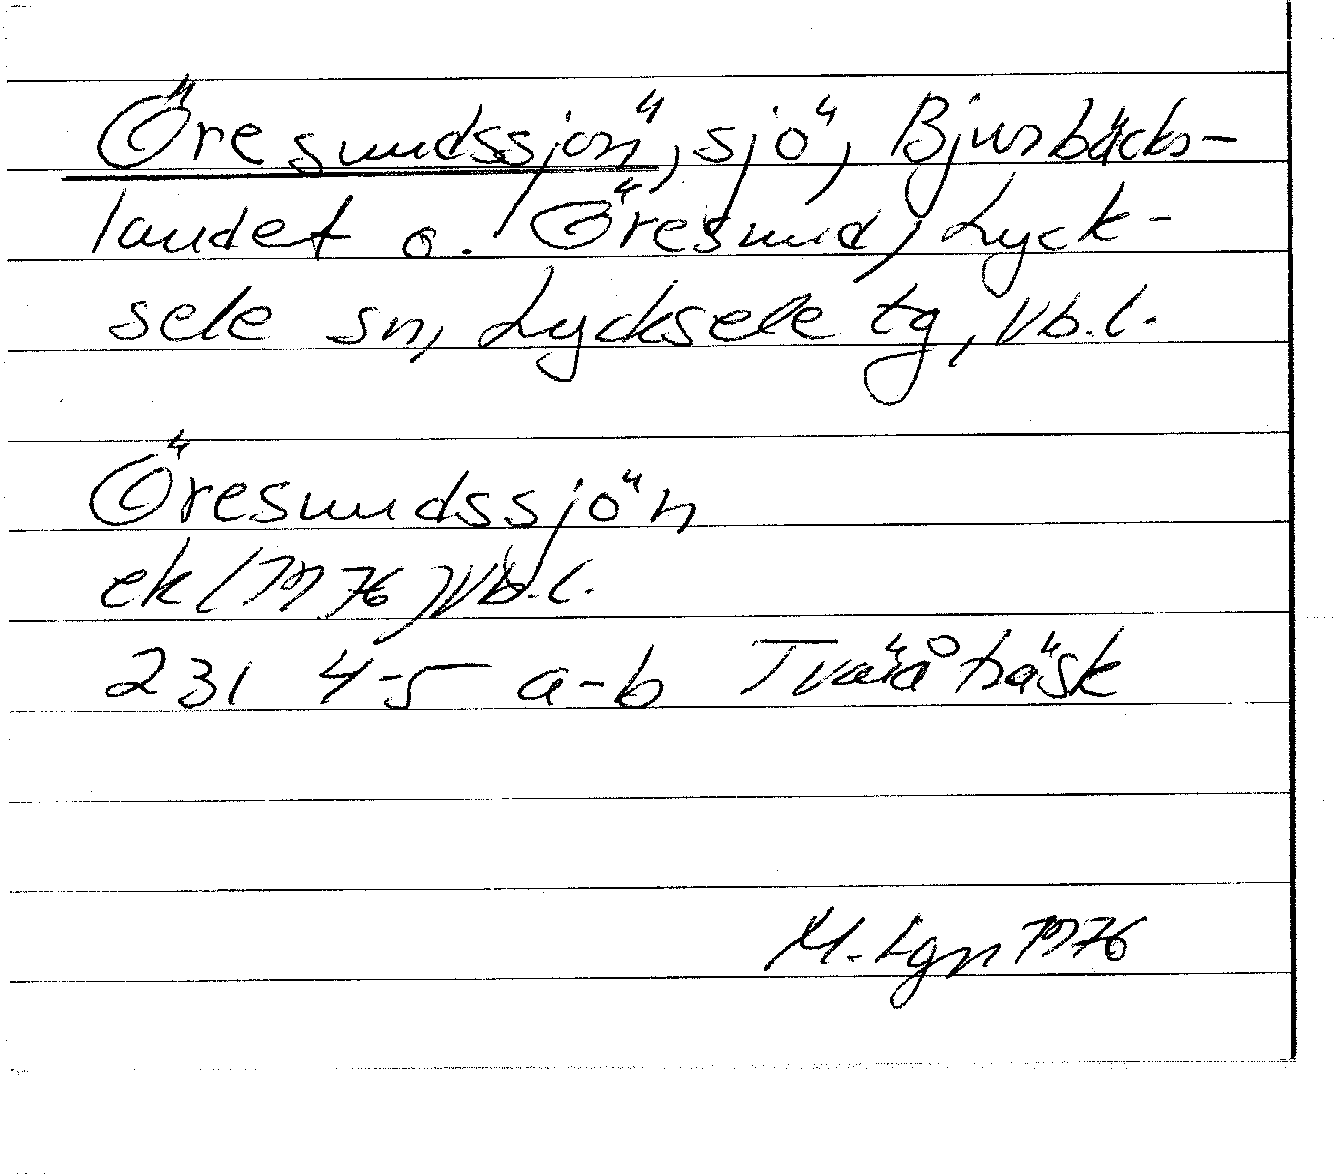 Öresundssjön, sjö, Bjursbäcks-
landet o. Öresund, Lyck-
sele sn, Lycksele tg, Vb.l.
Öresundssjön
ek (1976) Vb.l.
231 4-5 a-b Tväråträsk
M. Lgn 1976